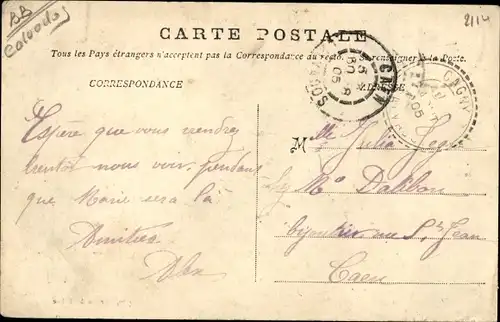 BB
Calvados
2114
CARTE POSTALE
Tous les Pays étrangers n'acceptent pas la Correspondance au recto. Se renseigner à la Poste.
CORRESPONDANCE
CAEN
05
CAGNY
05
Espère que vous viendrez
bientôt nous voir, pendant
que Marie sera là
Amitiés
M
elle Julia
chez Me
bijoutier rue St Jean
Caen